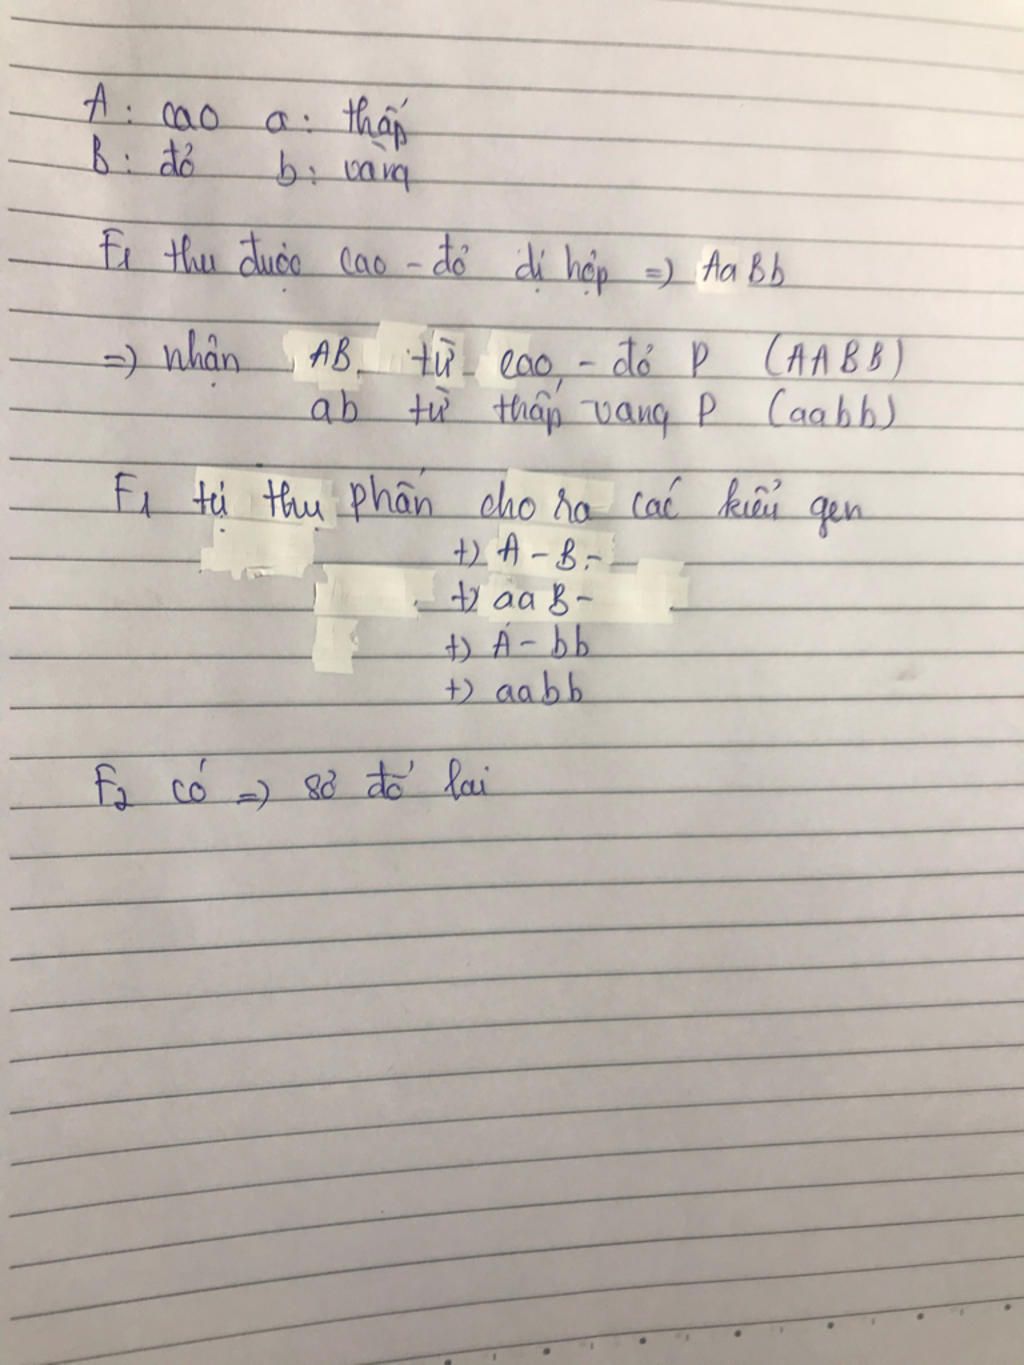 A: cao a: thấp
B: đỏ b: vàng
F1 thu được cao - đỏ dị hợp => AaBb
=> nhận AB từ cao - đỏ P (AABB)
ab từ thấp vang P (aabb)
F1 tự thụ phấn cho ra các kiểu gen
+) A - B -
+) aa B -
+) A - bb
+) aabb
F2 có => sơ đố lai